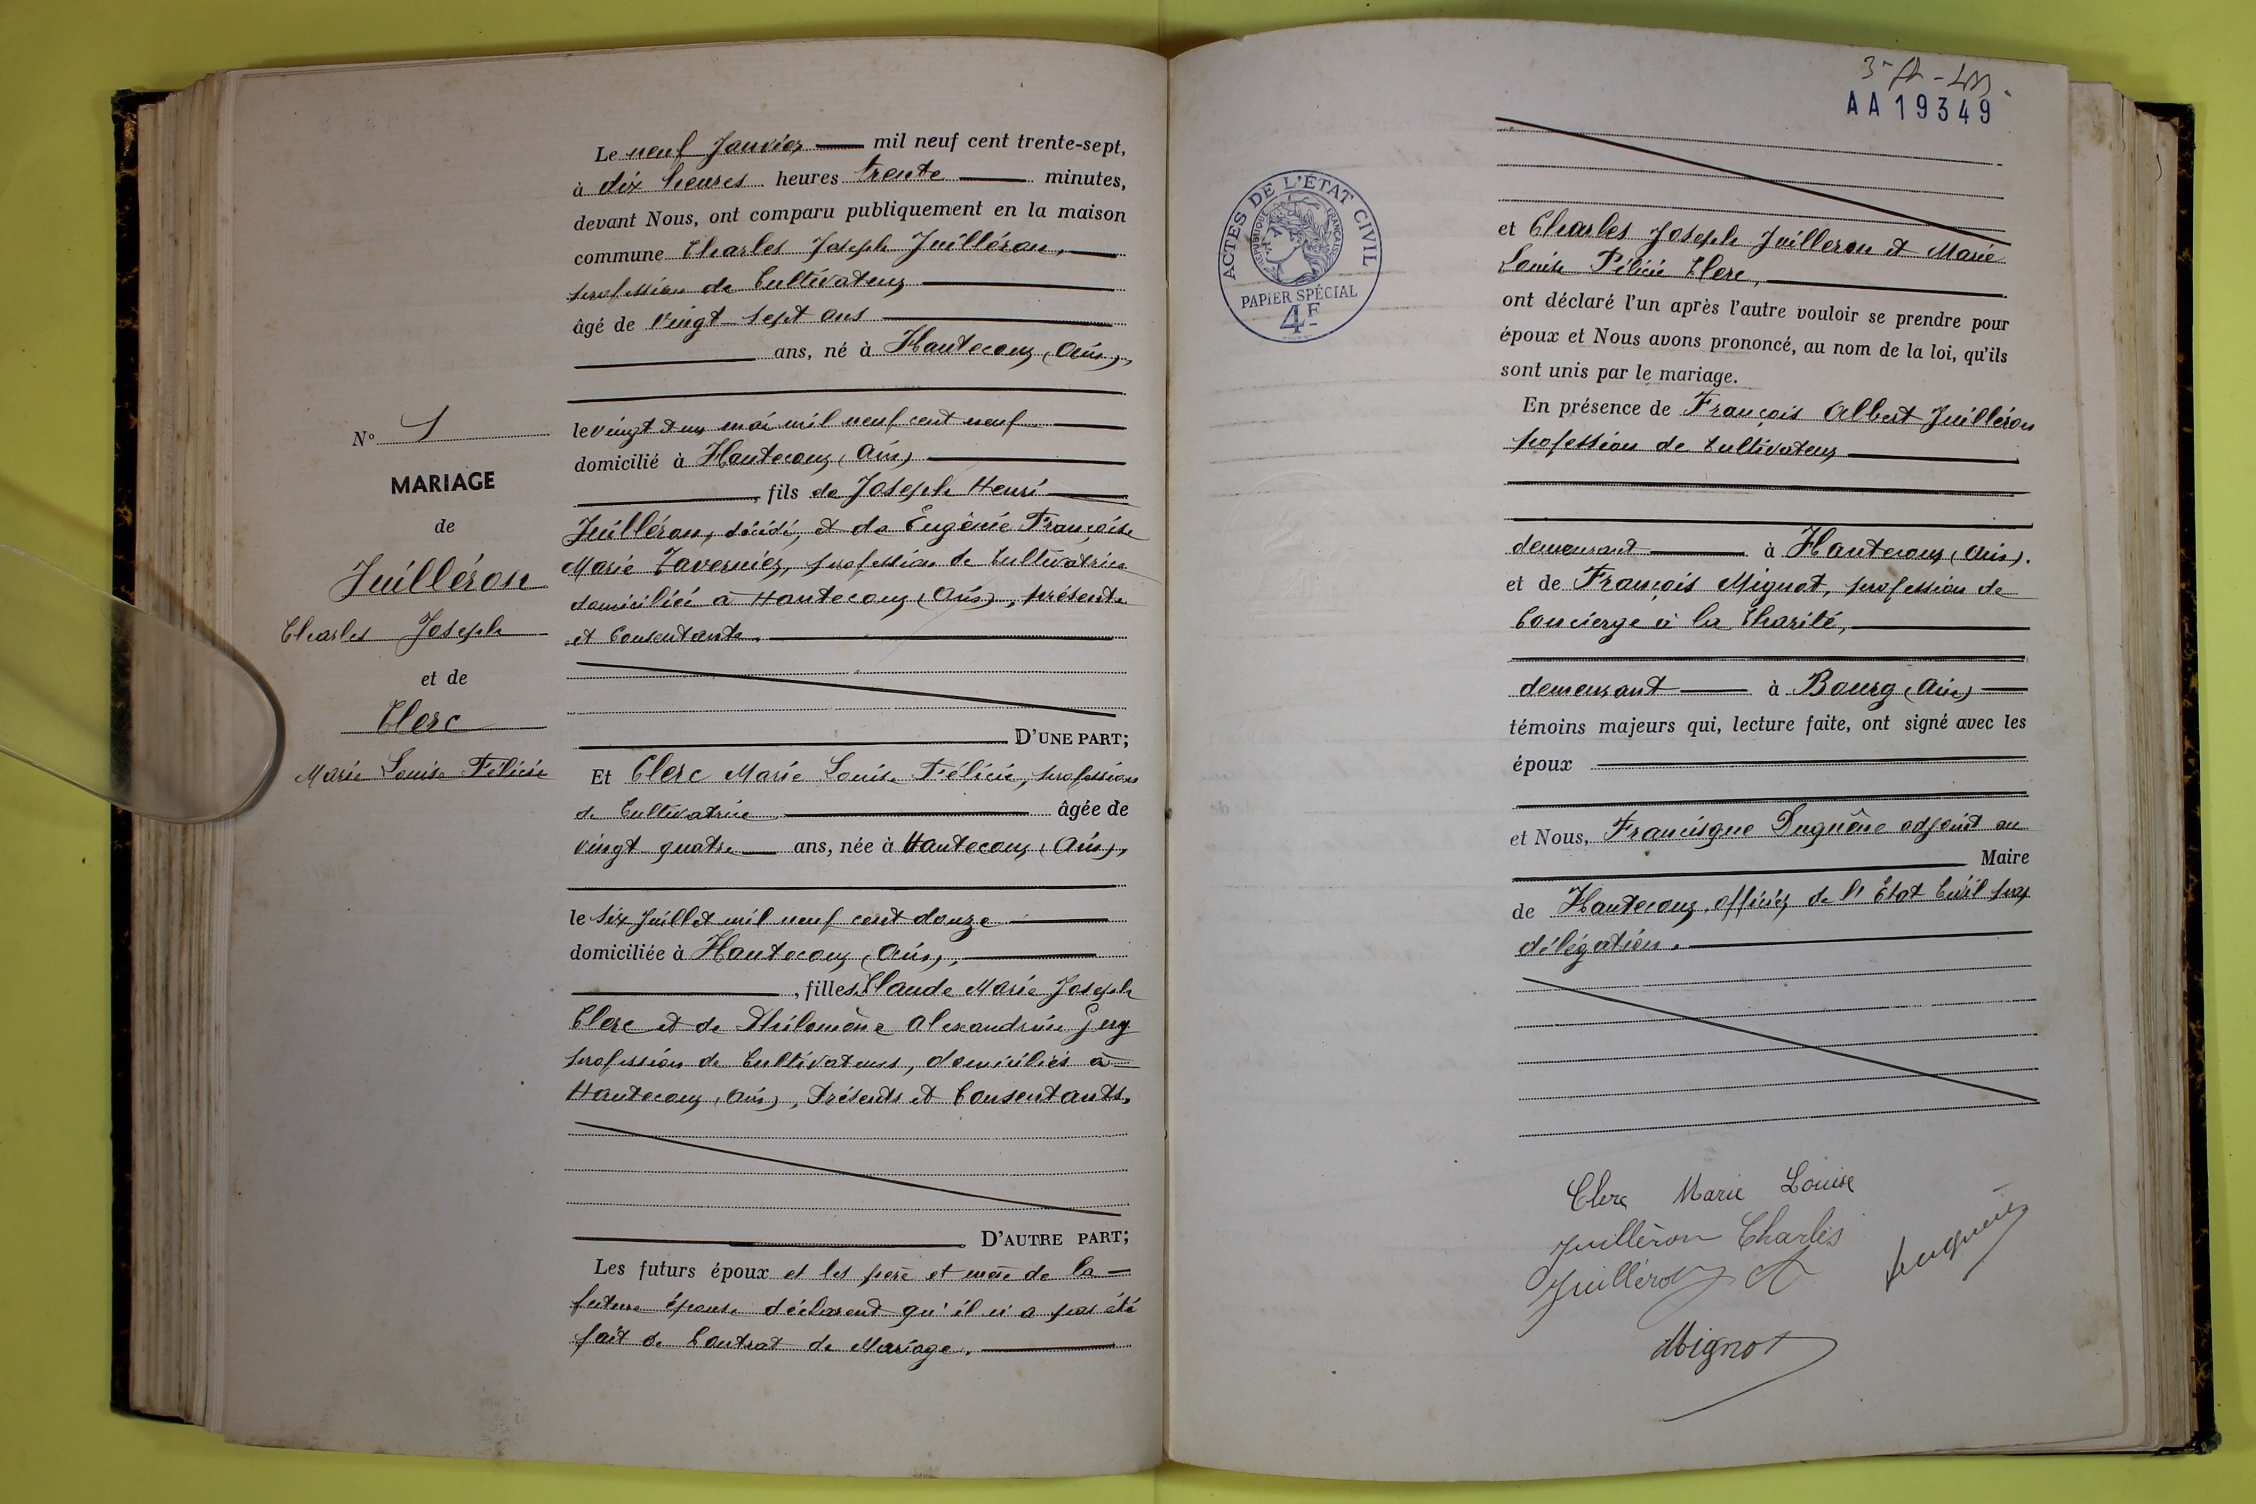 N° 1
MARIAGE
de
Juilléron
Charles Joseph
et de
Clerc
Marie Louise Félicie
Le neuf Janvier mil neuf cent trente-sept,
à dix heures heures trente minutes,
devant Nous, ont comparu publiquement en la maison
commune Charles Joseph Juilléron,
profession de Cultivateur
âgé de vingt sept ans
ans, né à Hautecour (Ain),
le vingt et un mai mil neuf cent neuf
domicilié à Hautecour (Ain)
, fils de Joseph Henri
Juilléron, décédé, et de Eugénie Françoise
Marie Tavernier, profession de Cultivatrice
domiciliée à Hautecour (Ain), présente
et Consentante.
D'UNE PART;
Et Clerc Marie Louise Félicie, profession
de Cultivatrice âgée de
vingt quatre ans, née à Hautecour (Ain),
le six Juillet mil neuf cent douze
domiciliée à Hautecour (Ain),
, filles Claude Marie Joseph
Clerc et de Philomène Alexandrine
profession de Cultivateurs, domiciliés à
Hautecour (Ain), Présents et Consentants.
D'AUTRE PART;
Les futurs époux et les père et mère de la
future épouse déclarent qu'il n'a pas été
fait de Contrat de Mariage.
AA19349
ACTES DE L'ÉTAT CIVIL
RÉPUBLIQUE FRANÇAISE
PAPIER SPÉCIAL
4F
et Charles Joseph Juilleron et Marie
Louise Félicie Clerc,
ont déclaré l'un après l'autre vouloir se prendre pour
époux et Nous avons prononcé, au nom de la loi, qu'ils
sont unis par le mariage.
En présence de François Albert Juilléron
profession de Cultivateur
demeurant à Hautecour (Ain).
et de François Mignot, profession de
Concierge à la Charité,
demeurant à Bourg (Ain)
témoins majeurs qui, lecture faite, ont signé avec les
époux
et Nous, Francisque Duguène adjoint au
Maire
de Hautecour, officier de l'État Civil par
délégation.
Clerc Marie Louise
Juilléron Charles
Juilléron A
Mignot